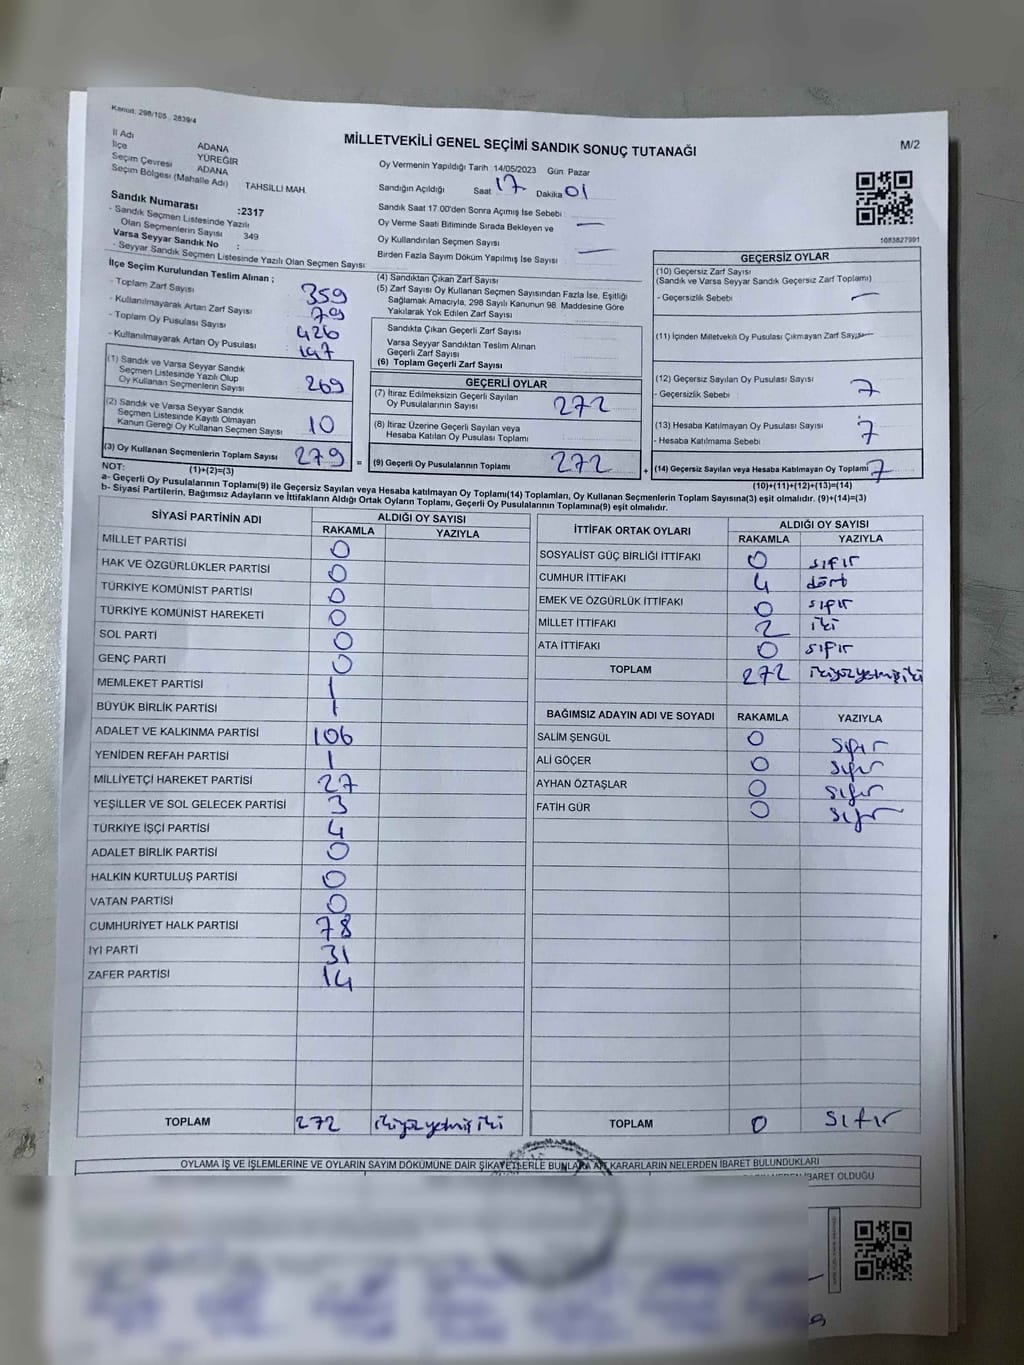 Kanun: 298/105 , 2839/4
MİLLETVEKİLİ GENEL SEÇİMİ SANDIK SONUÇ TUTANAĞI
M/2
İl Adı ADANA
İlçe YÜREĞİR
Seçim Çevresi ADANA
Seçim Bölgesi (Mahalle Adı) TAHSİLLİ MAH.
Sandık Numarası :2317
- Sandık Seçmen Listesinde Yazılı
Olan Seçmenlerin Sayısı : 349
Varsa Seyyar Sandık No :
- Seyyar Sandık Seçmen Listesinde Yazılı Olan Seçmen Sayısı:
Oy Vermenin Yapıldığı Tarih 14/05/2023 Gün Pazar
Sandığın Açıldığı Saat 17 Dakika 01
Sandık Saat 17.00'den Sonra Açımış İse Sebebi
Oy Verme Saati Bitiminde Sırada Bekleyen ve —
Oy Kullandırılan Seçmen Sayısı
Birden Fazla Sayım Döküm Yapılmış İse Sayısı —
1083827991
İlçe Seçim Kurulundan Teslim Alınan ;
- Toplam Zarf Sayısı 359
- Kullanılmayarak Artan Zarf Sayısı 79
- Toplam Oy Pusulası Sayısı 426
- Kullanılmayarak Artan Oy Pusulası 147
(1) Sandık ve Varsa Seyyar Sandık
Seçmen Listesinde Yazılı Olup
Oy Kullanan Seçmenlerin Sayısı 269
(2) Sandık ve Varsa Seyyar Sandık
Seçmen Listesinde Kayıtlı Olmayan
Kanun Gereği Oy Kullanan Seçmen Sayısı 10
(3) Oy Kullanan Seçmenlerin Toplam Sayısı 279 =
(1)+(2)=(3)
(4) Sandıktan Çıkan Zarf Sayısı
(5) Zarf Sayısı Oy Kullanan Seçmen Sayısından Fazla İse, Eşitliği
Sağlamak Amacıyla, 298 Sayılı Kanunun 98. Maddesine Göre
Yakılarak Yok Edilen Zarf Sayısı
Sandıkta Çıkan Geçerli Zarf Sayısı
Varsa Seyyar Sandıktan Teslim Alınan
Geçerli Zarf Sayısı
(6) Toplam Geçerli Zarf Sayısı
GEÇERLİ OYLAR
(7) İtiraz Edilmeksizin Geçerli Sayılan
Oy Pusulalarının Sayısı 272
(8) İtiraz Üzerine Geçerli Sayılan veya
Hesaba Katılan Oy Pusulası Toplamı
(9) Geçerli Oy Pusulalarının Toplamı 272 +
GEÇERSİZ OYLAR
(10) Geçersiz Zarf Sayısı
(Sandık ve Varsa Seyyar Sandık Geçersiz Zarf Toplamı)
- Geçersizlik Sebebi —
(11) İçinden Milletvekili Oy Pusulası Çıkmayan Zarf Sayısı —
(12) Geçersiz Sayılan Oy Pusulası Sayısı 7
- Geçersizlik Sebebi
(13) Hesaba Katılmayan Oy Pusulası Sayısı 7
- Hesaba Katılmama Sebebi
(14) Geçersiz Sayılan veya Hesaba Katılmayan Oy Toplamı 7
(10)+(11)+(12)+(13)=(14)
NOT:
a- Geçerli Oy Pusulalarının Toplamı(9) ile Geçersiz Sayılan veya Hesaba katılmayan Oy Toplamı(14) Toplamları, Oy Kullanan Seçmenlerin Toplam Sayısına(3) eşit olmalıdır. (9)+(14)=(3)
b- Siyasi Partilerin, Bağımsız Adayların ve İttifakların Aldığı Ortak Oyların Toplamı, Geçerli Oy Pusulalarının Toplamına(9) eşit olmalıdır.
SİYASİ PARTİNİN ADI ALDIĞI OY SAYISI
RAKAMLA YAZIYLA
MİLLET PARTİSİ 0
HAK VE ÖZGÜRLÜKLER PARTİSİ 0
TÜRKİYE KOMÜNİST PARTİSİ 0
TÜRKİYE KOMÜNİST HAREKETİ 0
SOL PARTİ 0
GENÇ PARTİ 0
MEMLEKET PARTİSİ 1
BÜYÜK BİRLİK PARTİSİ 1
ADALET VE KALKINMA PARTİSİ 106
YENİDEN REFAH PARTİSİ 1
MİLLİYETÇİ HAREKET PARTİSİ 27
YEŞİLLER VE SOL GELECEK PARTİSİ 3
TÜRKİYE İŞÇİ PARTİSİ 4
ADALET BİRLİK PARTİSİ 0
HALKIN KURTULUŞ PARTİSİ 0
VATAN PARTİSİ 0
CUMHURİYET HALK PARTİSİ 78
İYİ PARTİ 31
ZAFER PARTİSİ 14
TOPLAM 272 ikiyüzyetmiş iki
İTTİFAK ORTAK OYLARI ALDIĞI OY SAYISI
RAKAMLA YAZIYLA
SOSYALİST GÜÇ BİRLİĞİ İTTİFAKI 0 sıfır
CUMHUR İTTİFAKI 4 dört
EMEK VE ÖZGÜRLÜK İTTİFAKI 0 sıfır
MİLLET İTTİFAKI 2 iki
ATA İTTİFAKI 0 sıfır
TOPLAM 272 ikiyüzyetmişiki
BAĞIMSIZ ADAYIN ADI VE SOYADI RAKAMLA YAZIYLA
SALİM ŞENGÜL 0 sıfır
ALİ GÖÇER 0 sıfır
AYHAN ÖZTAŞLAR 0 sıfır
FATİH GÜR 0 sıfır
TOPLAM 0 sıfır
OYLAMA İŞ VE İŞLEMLERİNE VE OYLARIN SAYIM DÖKÜMÜNE DAİR ŞİKAYETLERLE BUNLARA AİT KARARLARIN NELERDEN İBARET BULUNDUKLARI
İBARET OLDUĞU